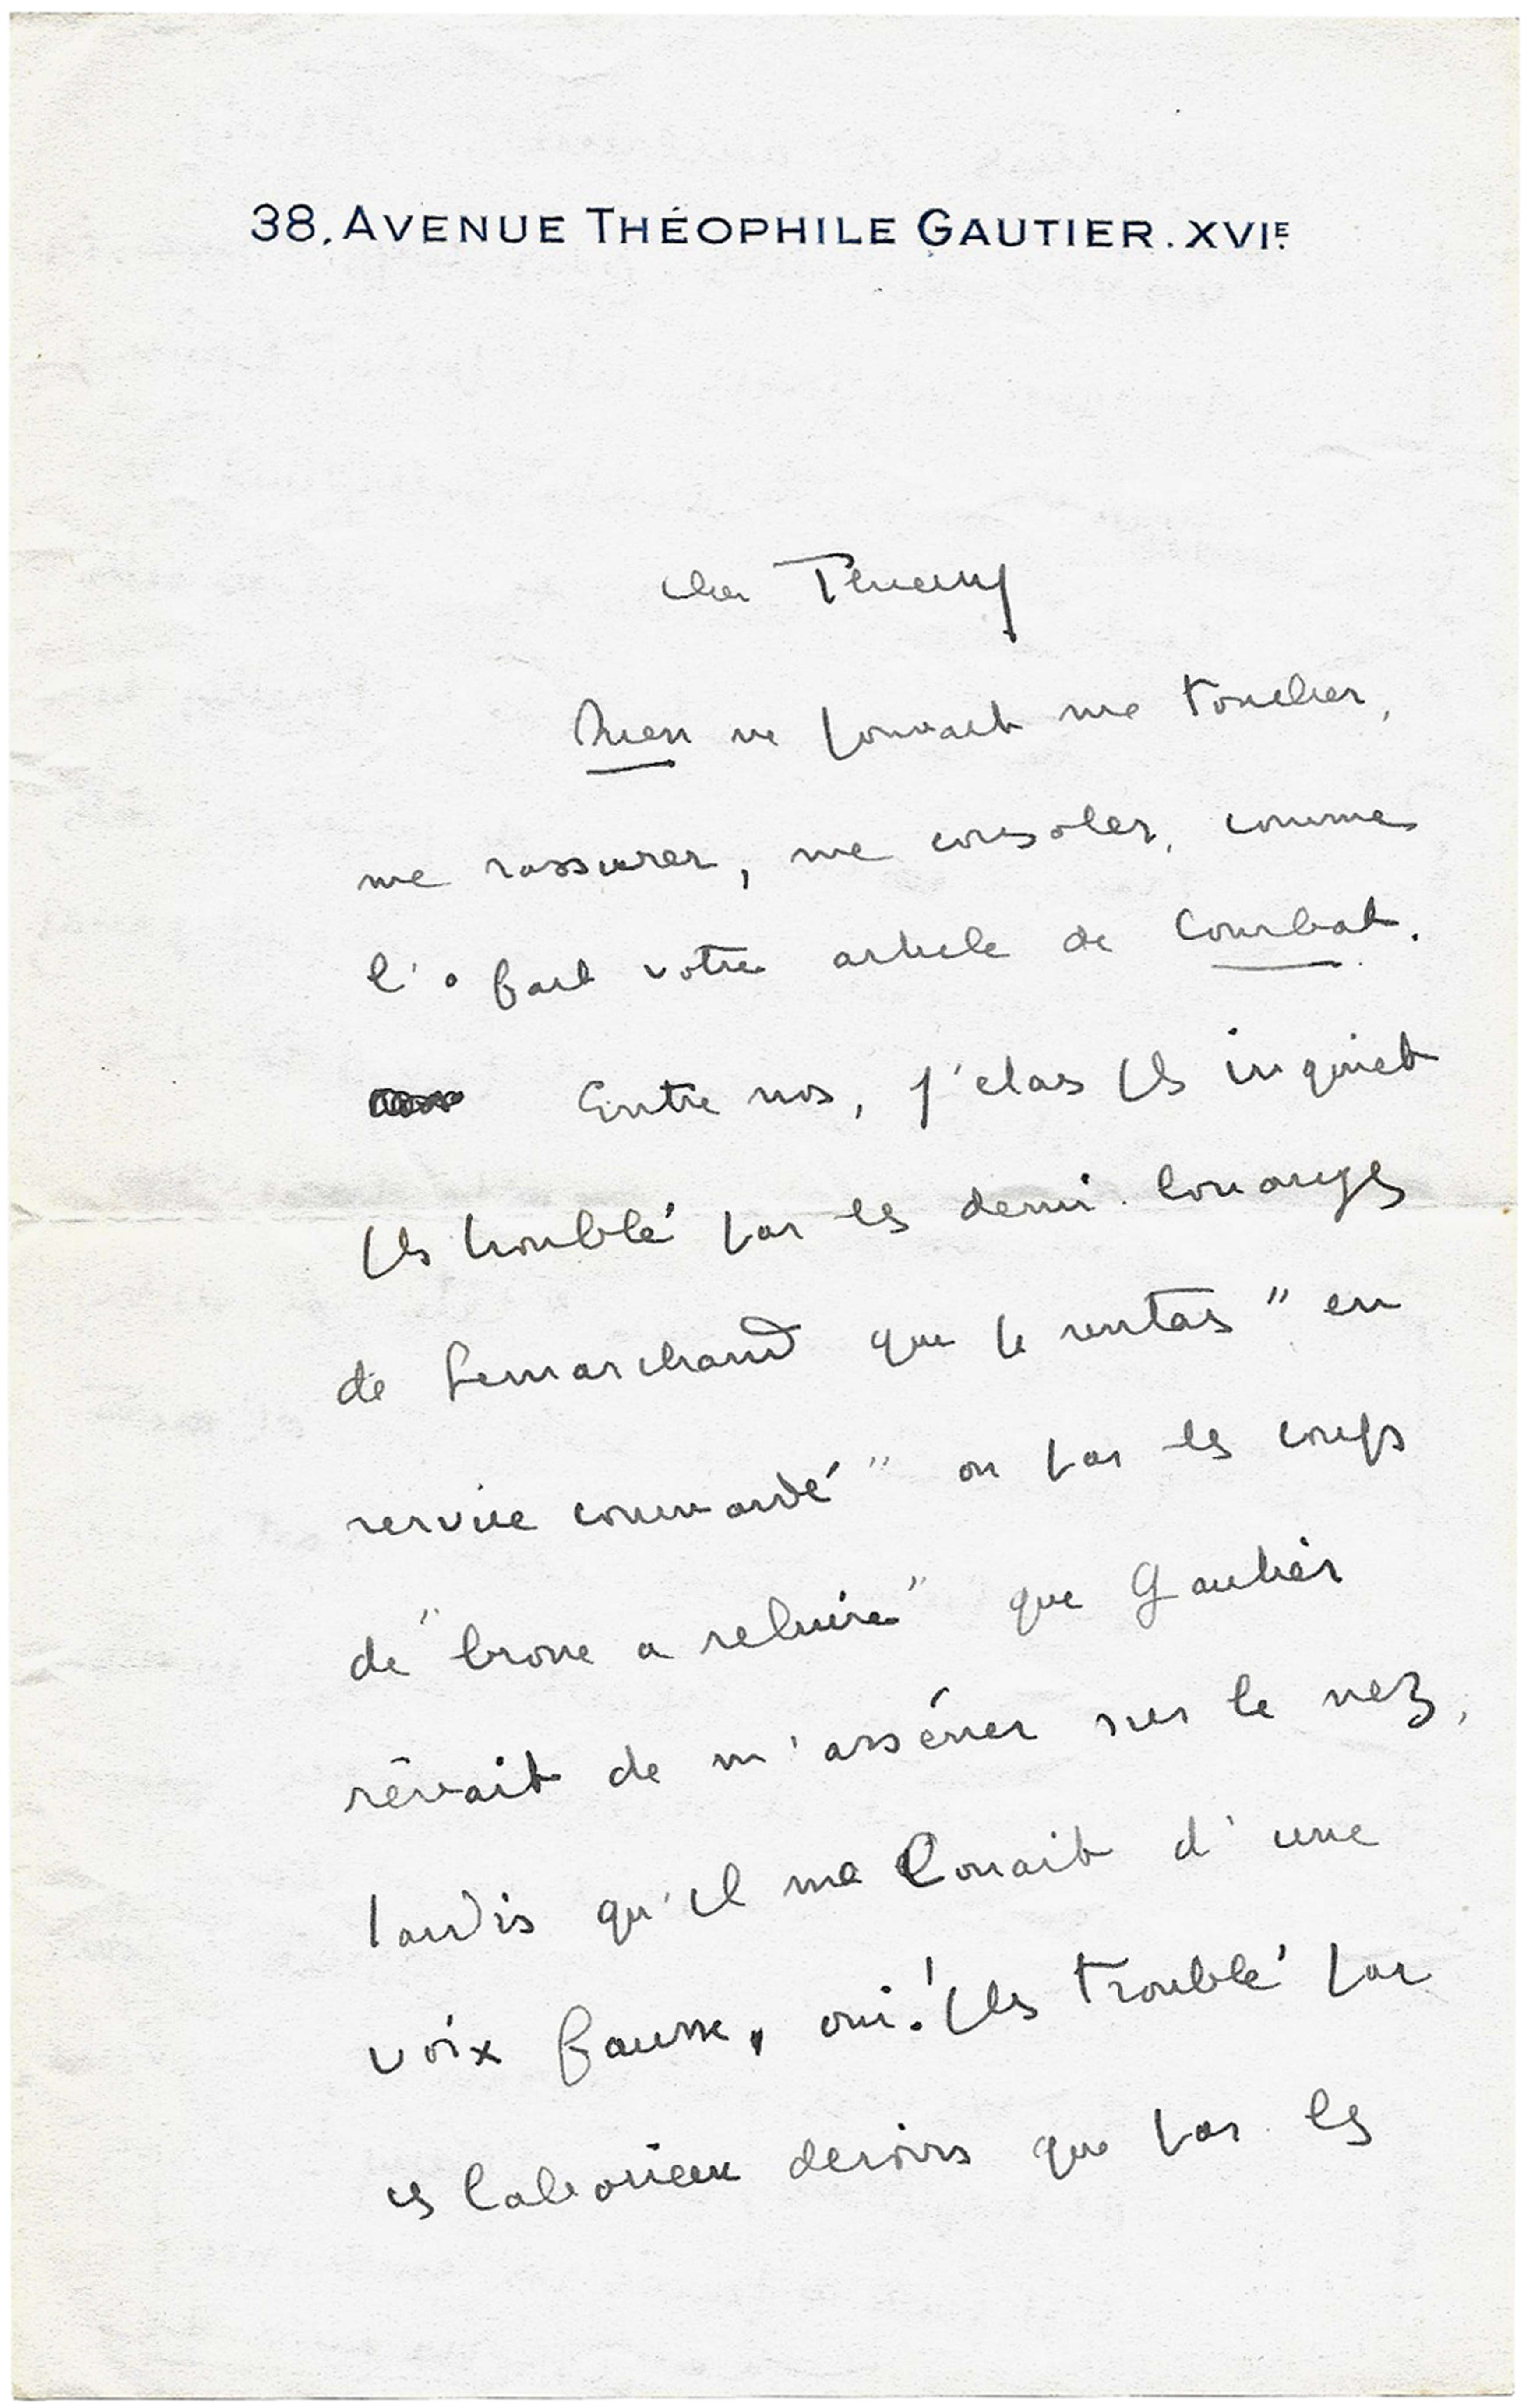 38, AVENUE THÉOPHILE GAUTIER. XVIE.
cher Thierry
Rien ne pouvait me toucher,
me rassurer, me consoler, comme
l'a fait votre article de Combat.
Entre nos, j'étais pls inquiet
pls troublé par les demi-louanges
de Lemarchand que je sentais "en
service commandé" ou par les coups
de "brosse a reluire" que Gautier
rêvait de m'asséner sur le nez,
tandis qu'il me louait d'une
voix fausse, oui! pls troublé par
ces laborieux devoirs que par les